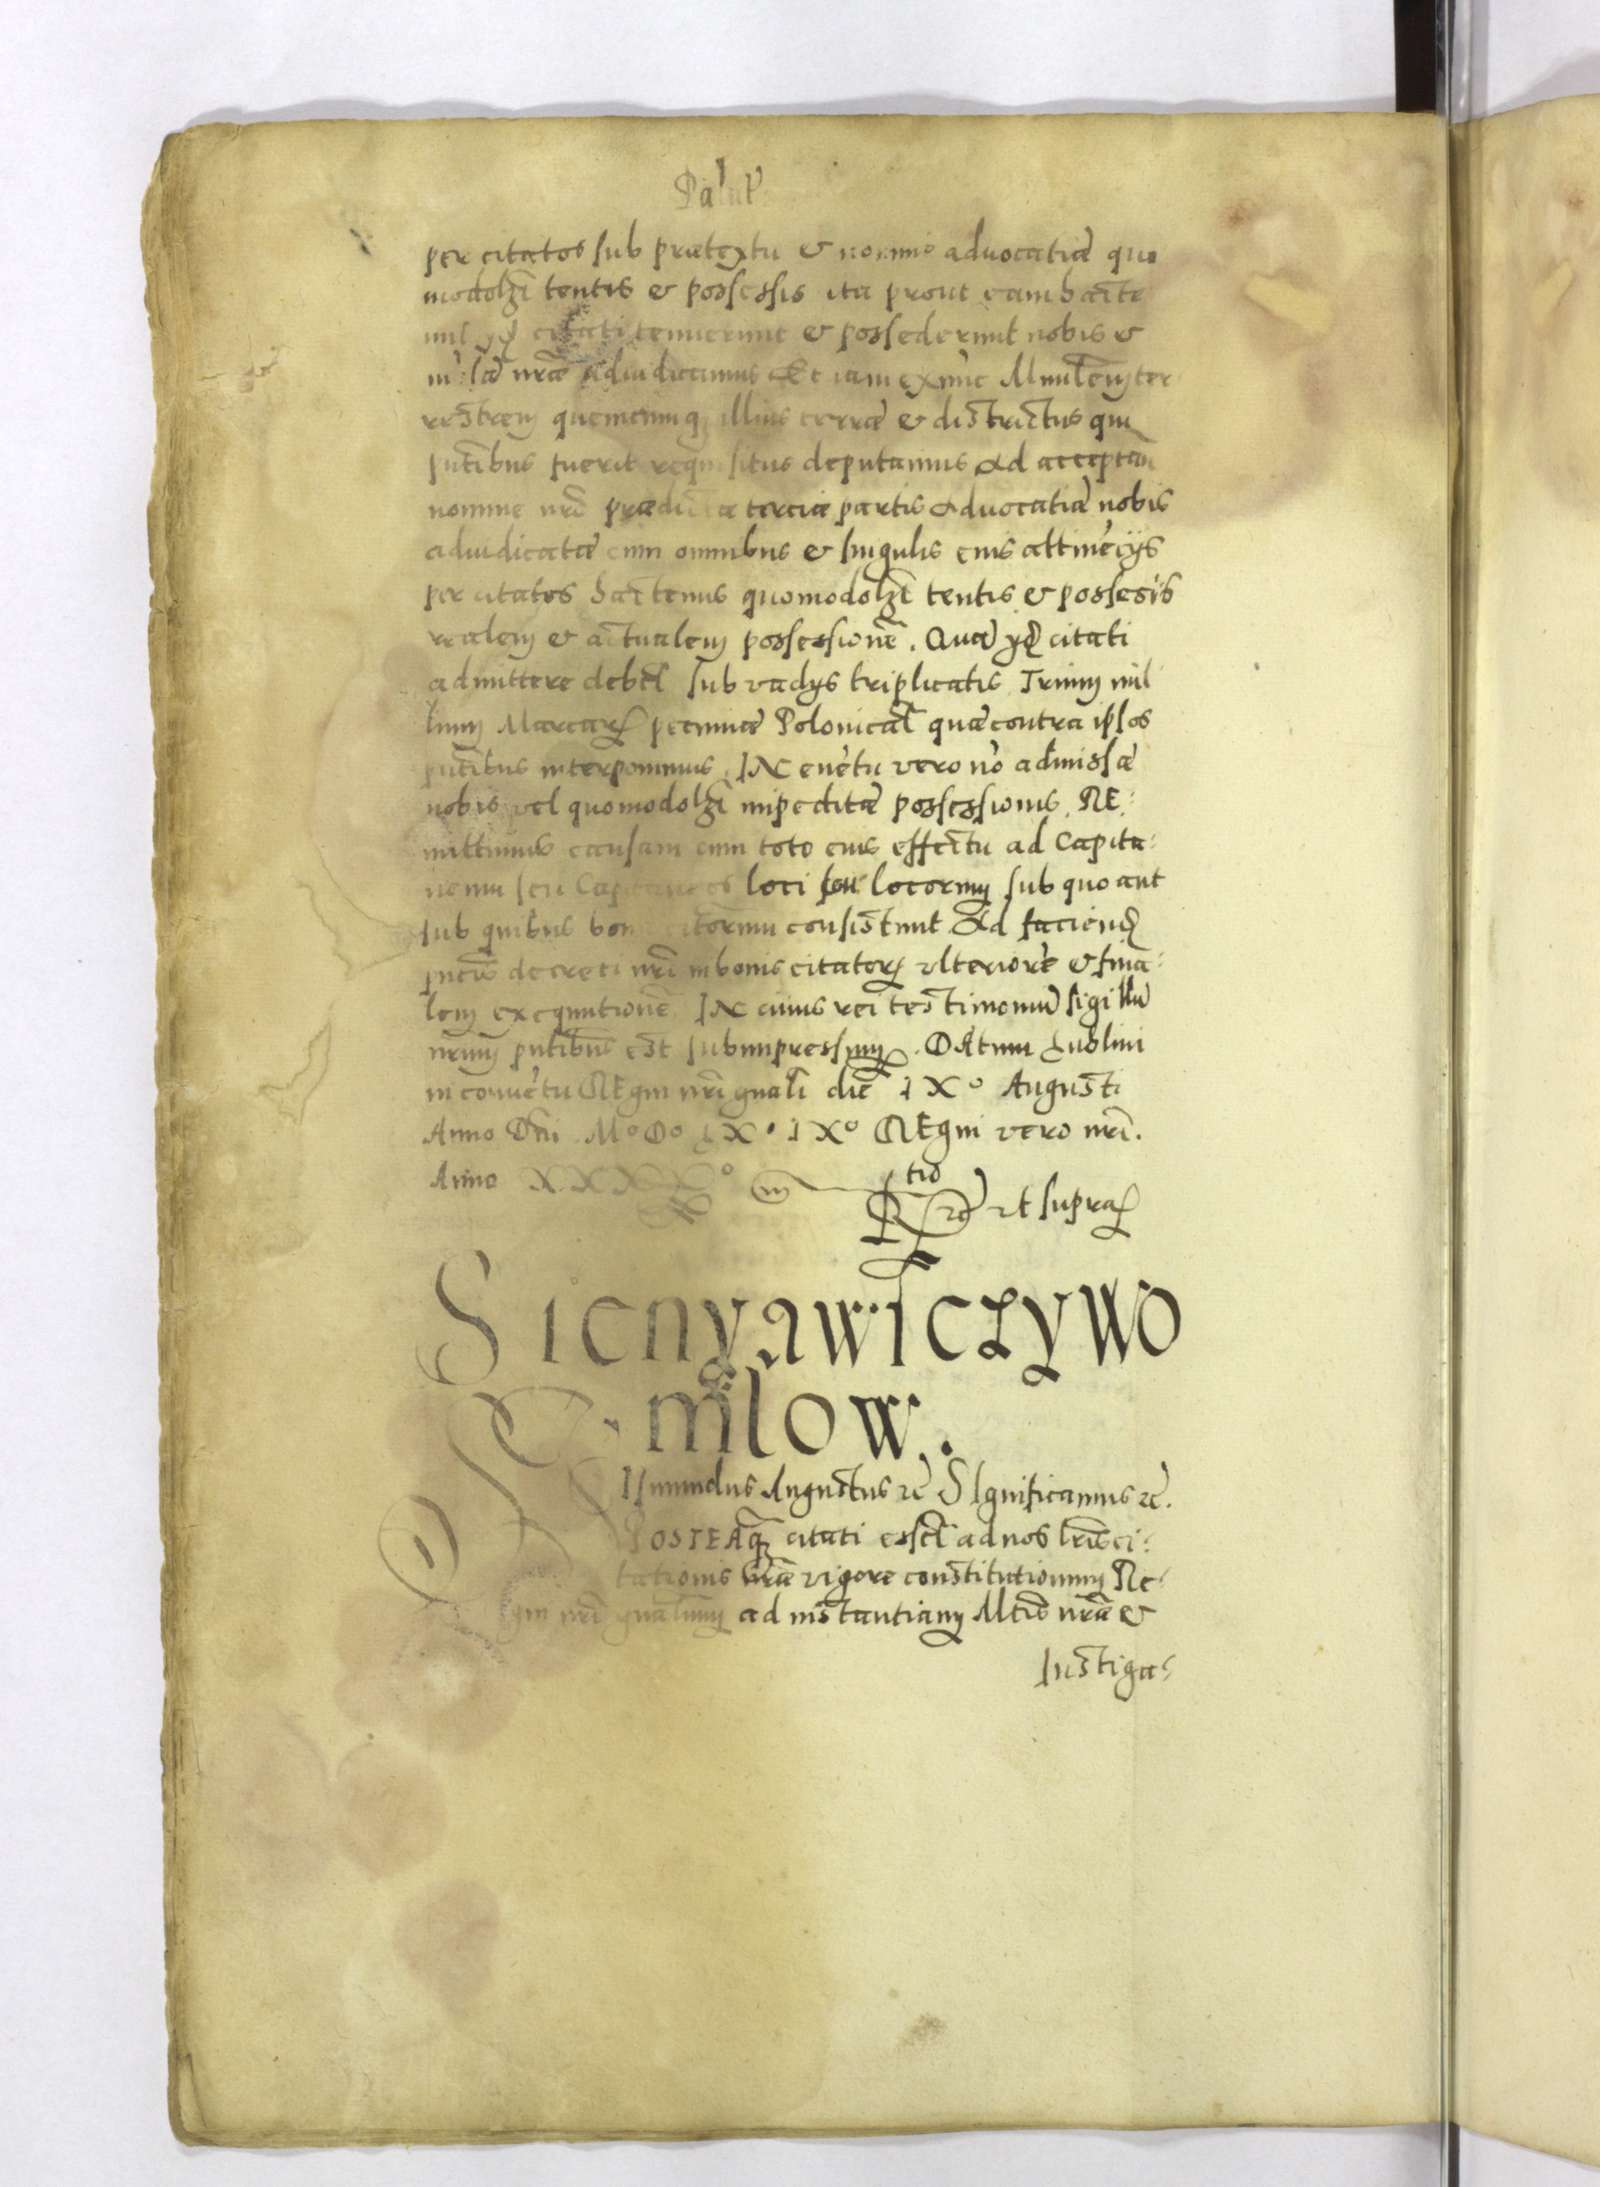 per citatos sub prætextu & nomine advocatiæ quo
modolȝt tentis & possessis ita prout eam hacte
citati tenuerunt & possederunt nobis &
nræ adiudicamus Et iam exnūc Mnrlem ter
restrem quemcunq illius terræ & districtus qui
pntibus fuerit requisitus deputamus Ad acceptan
nomine nrō prædictæ terciæ partis Advocatiæ nobis
adiudicatæ cum omnibus & singulis eius attinēcijs
per citatos hactenus quomodolȝt tentis & possessis
realem & actualem possessionē. Quā ijd citati
admittere debēt sub vadys triplicatis Trium mil
lium Marcar pecuniæ Polonicāl quæ contra ipsos
pntibus interponimus. IN evētu vero nō admissæ
nobis vel quomodolȝt impeditæ possessionis. RE:
mittimus causam cum toto eius effectu ad Capita:
neum seu Capitaneos loci seu locorum sub quo aut
sub quibus bona citatorum consistunt Ad faciend
pntis decreti nri in bonis citator ulteriorē & fina:
lem exequutionē IN cuius rei testimoniū sigillū
nrum pntibus est subimpressum. DAtum Lublini
in conuētu REgni nri gnali die IXº Augusti
Anno Dni Mº Dº LXº IXº REgni vero nri.
Anno XXXXº
Rtio ut supra
Sienyawiczywo
mslow.
Ismundus Augustus rē SIgnificamus rē.
POSTEAq citati essēt ad nos lris ci:
tationis nræ vigore constitutionum Re:
gni nri gnalium ad instantiam Mtis nræ &
Instiga: